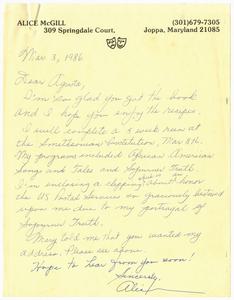 ALICE McGILL
309 Springdale Court,
(301)679-7305
Joppa, Maryland 21085
Mar 3, 1986
Dear Agnes,
I'm so glad you got the book
and I hope you enjoy the recipes.
I will complete a 3 week run at
the Smithsonian Institution, Mar 8th.
My program included African American
Songs and Tales and Sojourner Truth
I'm enclosing a clipping about honor
the US Postal Services so graciously bestowed
upon me due to my portrayal of
Sojourner Truth.
Mary told me that you wanted my
address. Please see above.
Hope to hear from you soon!
Sincerely,
Alice